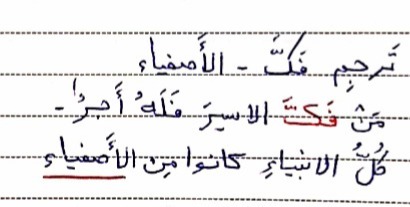 تَرجِم فَكَّ - الأَصفياء
مَنْ فَكَّ الاسيرَ فَلَهُ أَجرُا -
كُلُ الانبياءِ كانوا مِن الأَصفياء